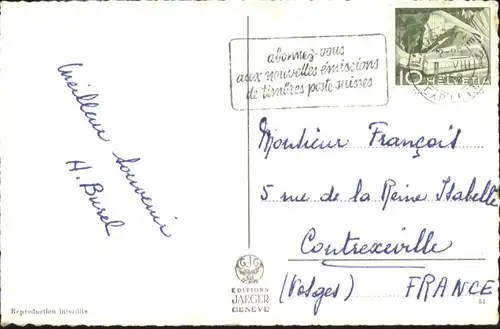 abonnez-vous
aux nouvelles émissions
de timbres-poste suisses
10 HELVETIA
VIII
Meilleur souvenir
H. Burel
Monsieur François
5 rue de la Reine Isabelle
Contrexeville
(Vosges) FRANCE
ÉDITIONS
JAEGER
GENÈVE
Reproduction interdite
51